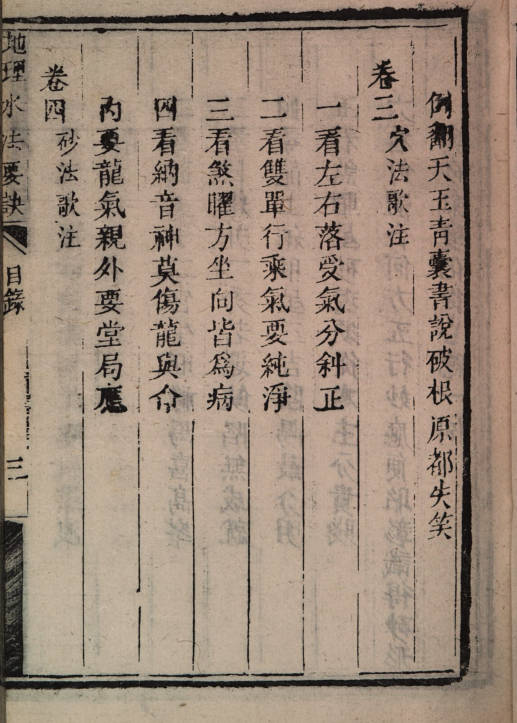 例翻天玉青囊書說破根原都失笑
卷三 穴法歌注
一看左右落受氣分斜正
二看雙單行乘氣要純淨
三看煞曜方坐向皆爲病
四看納音神莫傷龍與命
內要龍氣親外要堂局應
卷四 砂法歌注
地理水法要訣 目錄 三